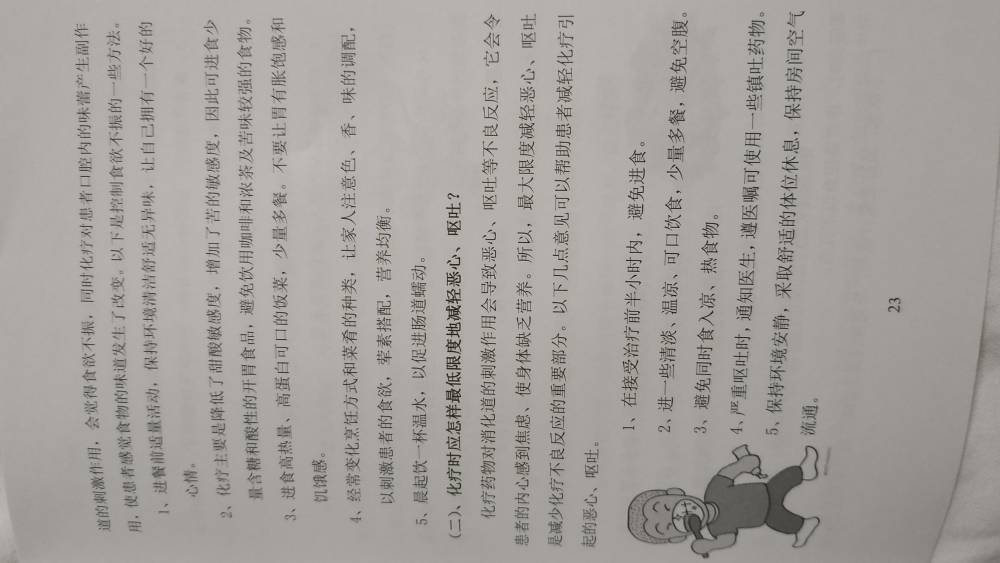 道的刺激作用，会觉得食欲不振，同时化疗对患者口腔内的味蕾产生副作
用，使患者感觉食物的味道发生了改变。以下是控制食欲不振的一些方法。
1、进餐前适量活动，保持环境清洁舒适无异味，让自己拥有一个好的
心情。
2、化疗主要是降低了甜酸敏感度，增加了苦的敏感度，因此可进食少
量含糖和酸性的开胃食品，避免饮用咖啡和浓茶及苦味较强的食物。
3、进食高热量、高蛋白可口的饭菜，少量多餐。不要让胃有胀饱感和
饥饿感。
4、经常变化烹饪方式和菜肴的种类，让家人注意色、香、味的调配，
以刺激患者的食欲，荤素搭配，营养均衡。
5、晨起饮一杯温水，以促进肠道蠕动。
(二)、化疗时应怎样最低限度地减轻恶心、呕吐？
化疗药物对消化道的刺激作用会导致恶心、呕吐等不良反应，它会令
患者的内心感到焦虑、使身体缺乏营养。所以，最大限度减轻恶心、呕吐
是减少化疗不良反应的重要部分。以下几点意见可以帮助患者减轻化疗引
起的恶心、呕吐。
1、在接受治疗前半小时内，避免进食。
2、进一些清淡、温凉、可口饮食，少量多餐，避免空腹。
3、避免同时食入凉、热食物。
4、严重呕吐时，通知医生，遵医嘱可使用一些镇吐药物。
5、保持环境安静，采取舒适的体位休息，保持房间空气
流通。
23